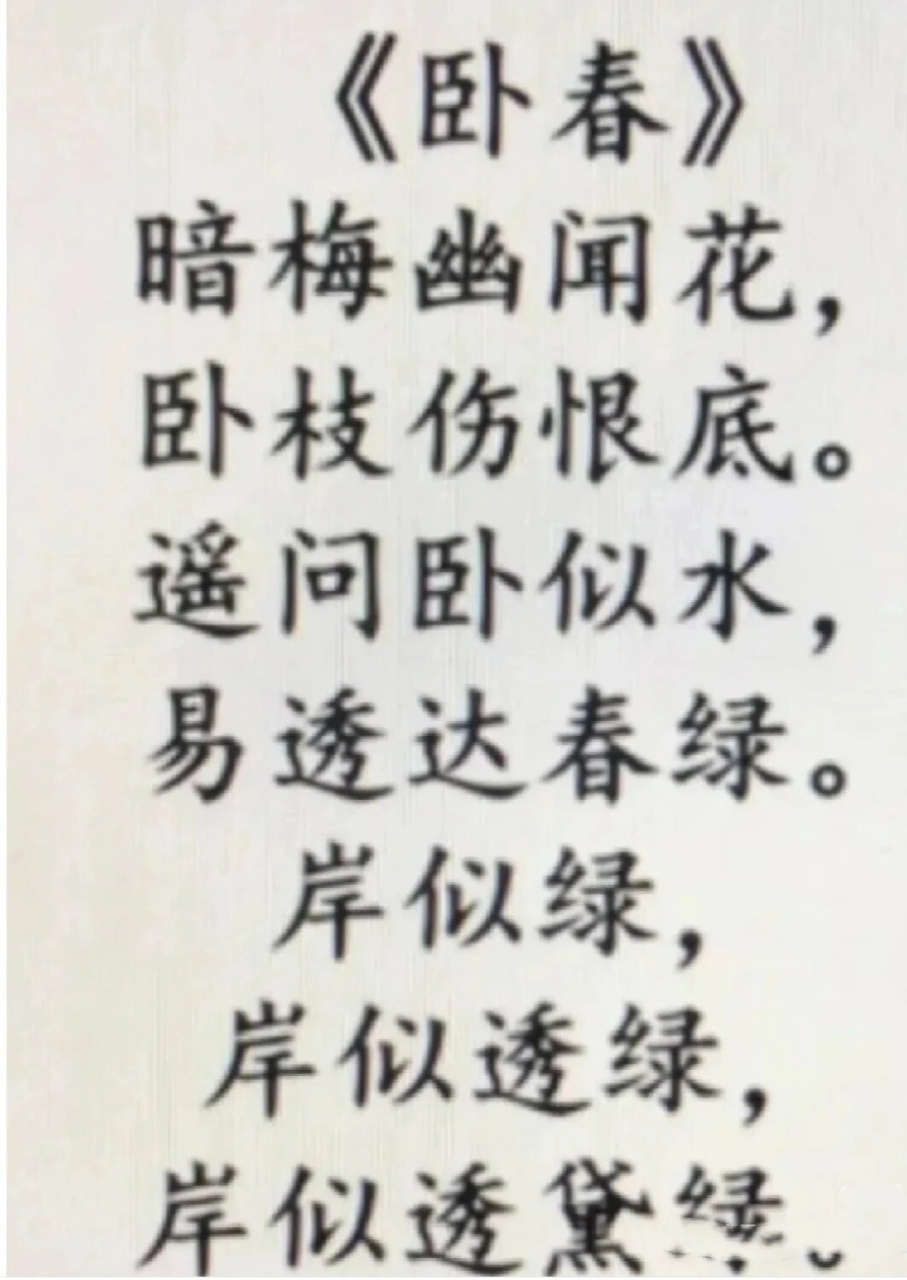 《卧春》
暗梅幽闻花，
卧枝伤恨底。
遥问卧似水，
易透达春绿。
岸似绿，
岸似透绿，
岸似透黛绿。